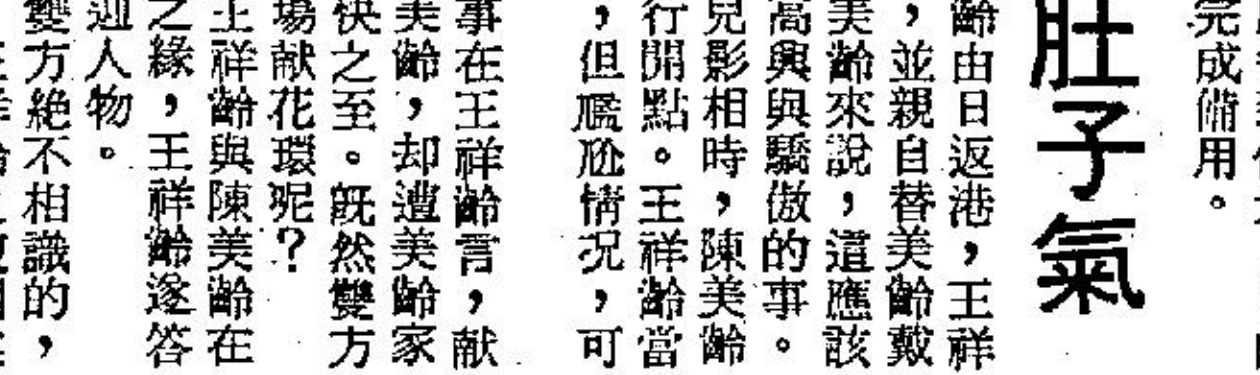 完成備用。
肚子氣
齡由日返港，王祥
，並親自替美齡戴
美齡來說，這應該
高興與驕傲的事。
兒影相時，陳美齡
行開點。王祥齡當
，但尷尬情况，可
事在王祥齡言，献
美齡，却遭美齡家
快之至。既然雙方
場献花環呢？
王祥齡與陳美齡在
之緣，王祥齡遂答
迎人物。
雙方絶不相識的，